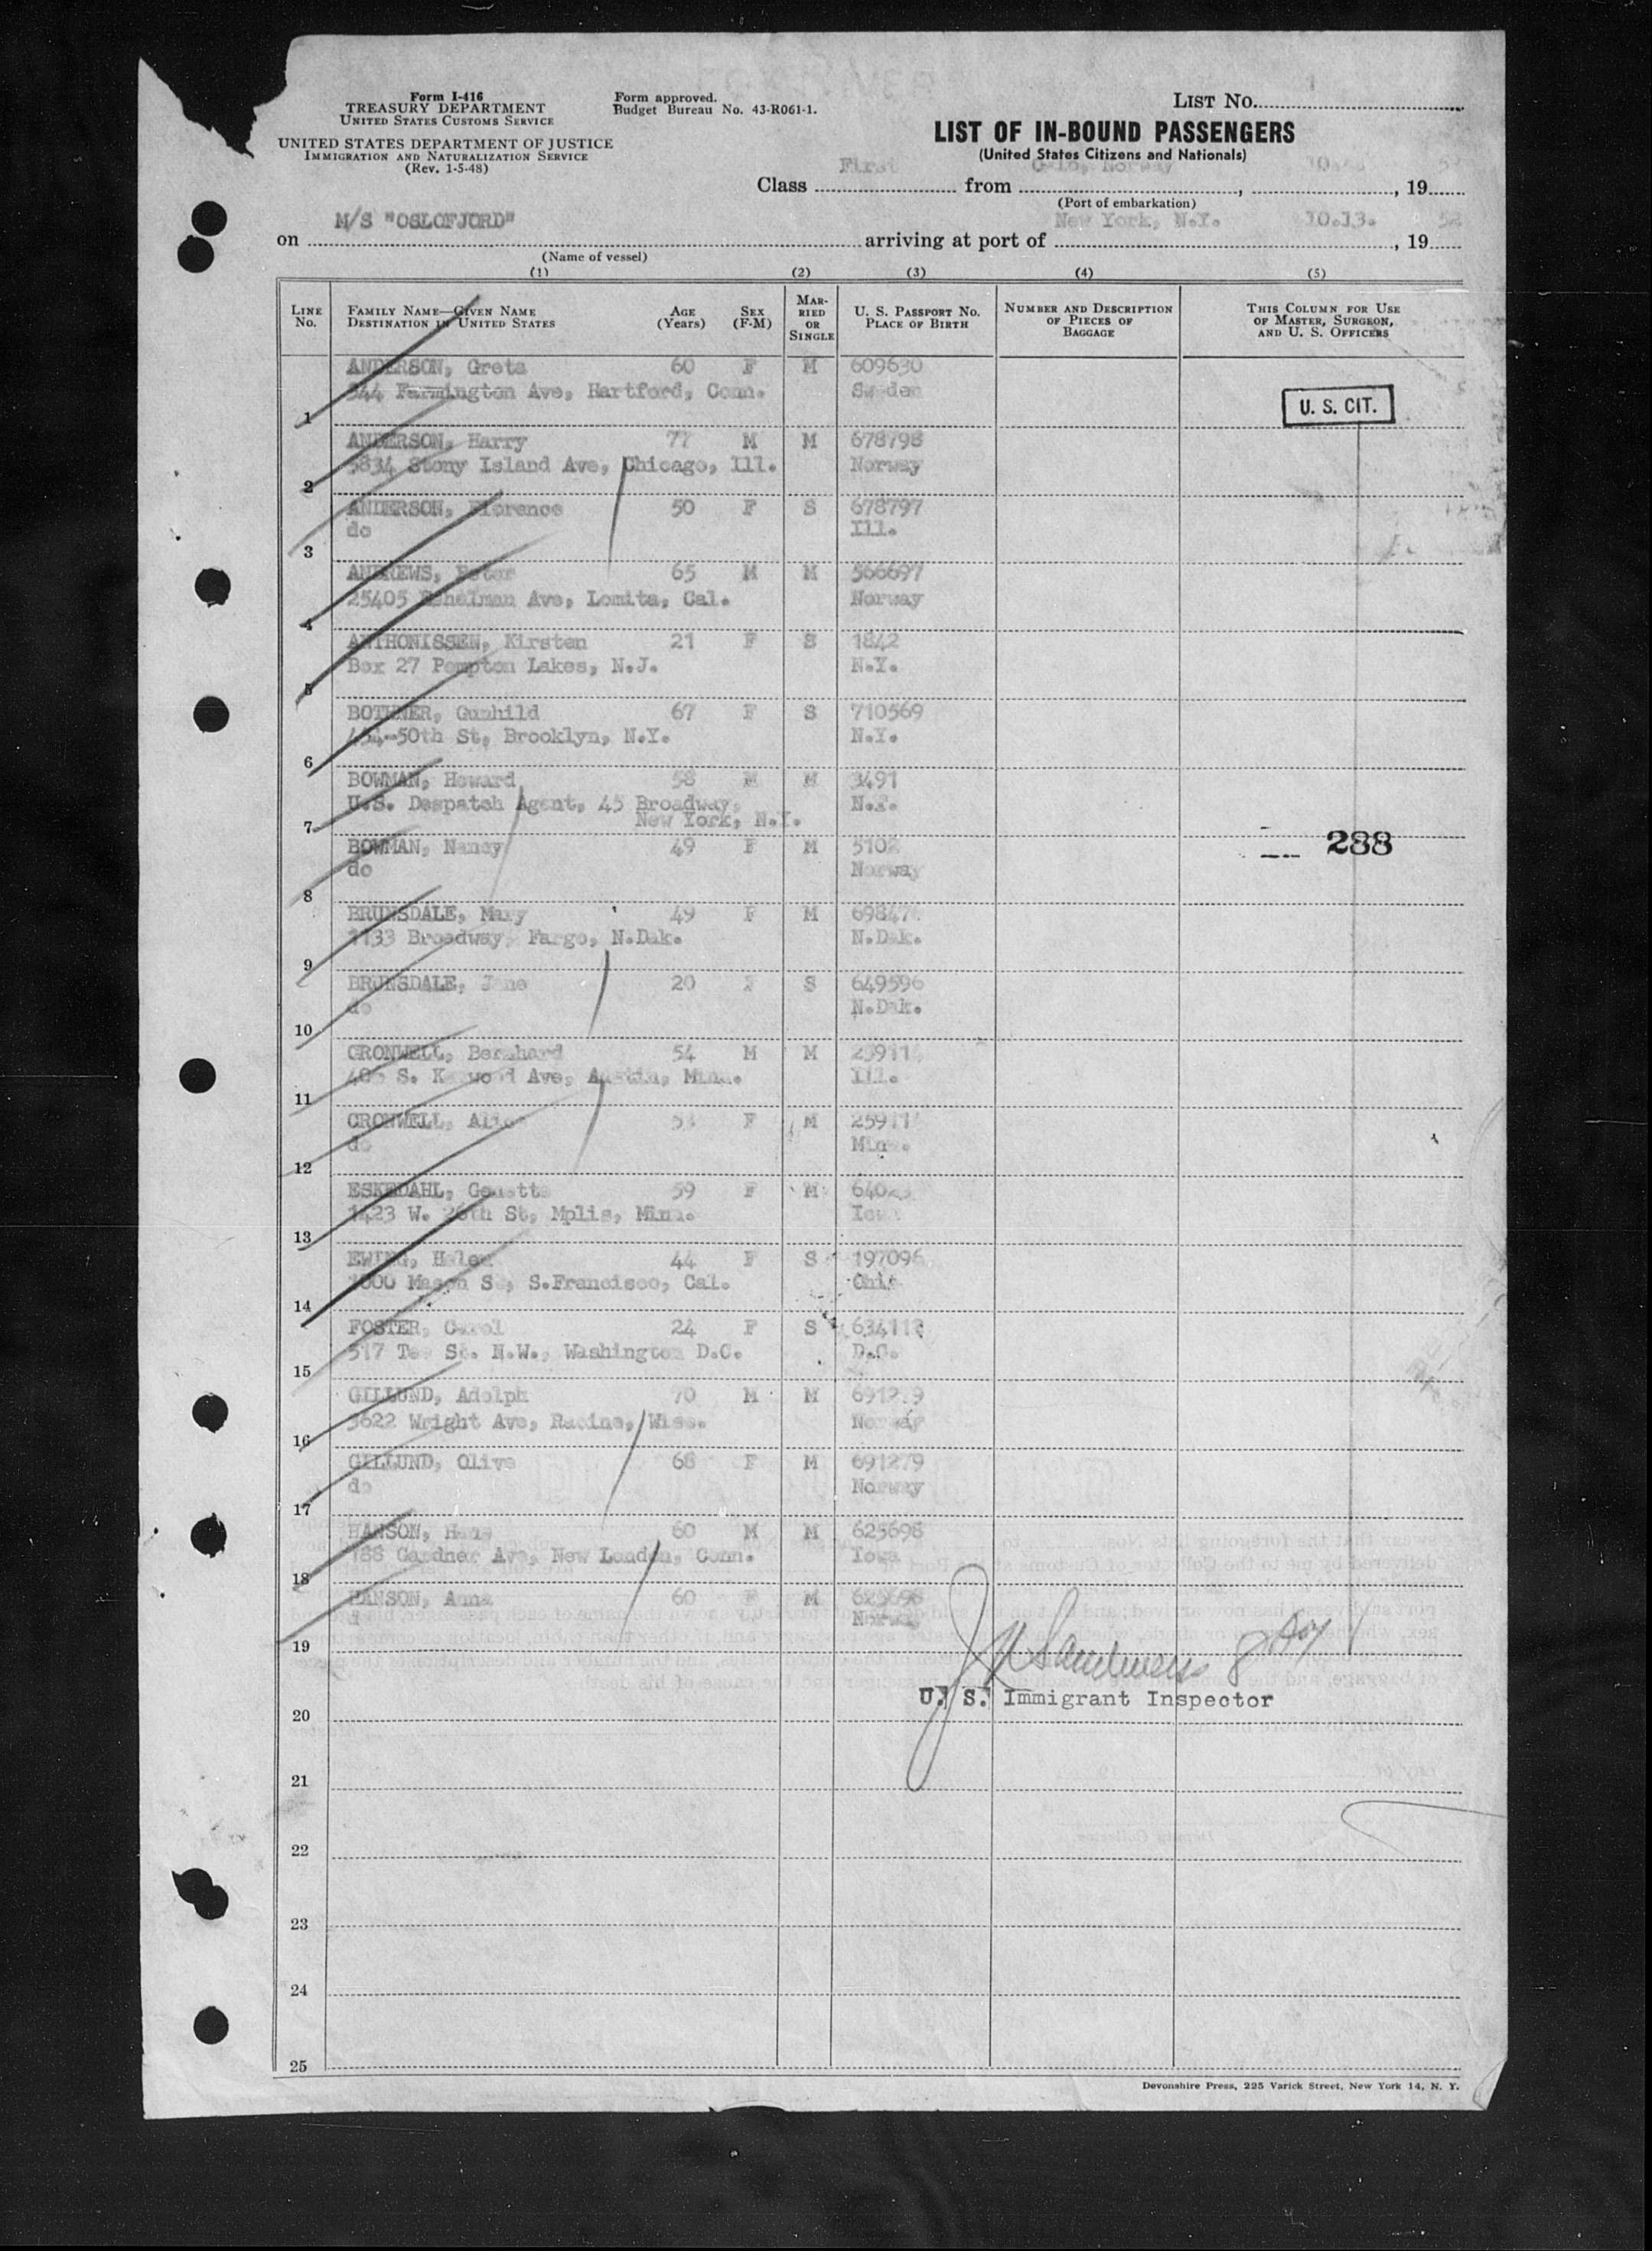 Form I-416
TREASURY DEPARTMENT
UNITED STATES CUSTOMS SERVICE
UNITED STATES DEPARTMENT OF JUSTICE
IMMIGRATION AND NATURALIZATION SERVICE
(Rev. 1-5-48)
Form approved.
Budget Bureau No. 43-R061-1.
LIST No.
LIST OF IN-BOUND PASSENGERS
(United States Citizens and Nationals)
Class First from Oslo, Norway, 19
(Port of embarkation)
on M/S "OSLOFJORD" arriving at port of New York, N.Y. 10.13., 19
(Name of vessel)
(1) (2) (3) (4) (5)
LINE No. FAMILY NAME—GIVEN NAME DESTINATION IN UNITED STATES AGE (Years) SEX (F-M) MARRIED OR SINGLE U. S. PASSPORT NO. PLACE OF BIRTH NUMBER AND DESCRIPTION OF PIECES OF BAGGAGE THIS COLUMN FOR USE OF MASTER, SURGEON, AND U. S. OFFICERS
ANDERSON, Greta 60 F M 609630
344 Farmington Ave, Hartford, Conn. Sweden
1 U. S. CIT.
ANDERSON, Harry 77 M M 678798
5834 Stony Island Ave, Chicago, Ill. Norway
2
ANDERSON, Florence 50 F S 678797
do Ill.
3
ANDREWS, Peter 65 M M 566697
25405 Eshelman Ave, Lomita, Cal. Norway
4
ANTHONISSEN, Kirsten 21 F S 1842
Box 27 Pompton Lakes, N.J. N.Y.
5
BOTHNER, Gunhild 67 F S 710569
434-50th St, Brooklyn, N.Y. N.Y.
6
BOWMAN, Howard 58 M M 3491
U.S. Despatch Agent, 45 Broadway, N.Y.
New York, N.Y.
7
BOWMAN, Nancy 49 F M 5102
do Norway
8 288
BRUNSDALE, Mary 49 F M
1133 Broadway, Fargo, N.Dak. N.Dak.
9
BRUNSDALE, Jane 20 F S 649596
do N.Dak.
10
CRONWELL, Bernhard 54 M M
S. Kenwood Ave, Austin, Minn. Ill.
11
CRONWELL, Alice F M
do Minn.
12
ESKEDAHL, 59 F M
1423 W. 26th St, Mplis, Minn. Iowa
13
EWING, Helen 44 F S 197096
1000 Mason St, S.Francisco, Cal. Ohio
14
FOSTER, Carol 24 F S
517 St. N.W., Washington D.C. D.C.
15
GILLUND, Adolph 70 M M
3622 Wright Ave, Racine, Wisc. Norway
16
GILLUND, Olive 68 F M 691279
do Norway
17
HANSON, Hans 60 M M 625698
188 Gardner Ave, New London, Conn. Iowa
18
HANSON, Anna 60 F M 625698
Norway
19
U. S. Immigrant Inspector
20
21
22
23
24
25
Devonshire Press, 225 Varick Street, New York 14, N. Y.